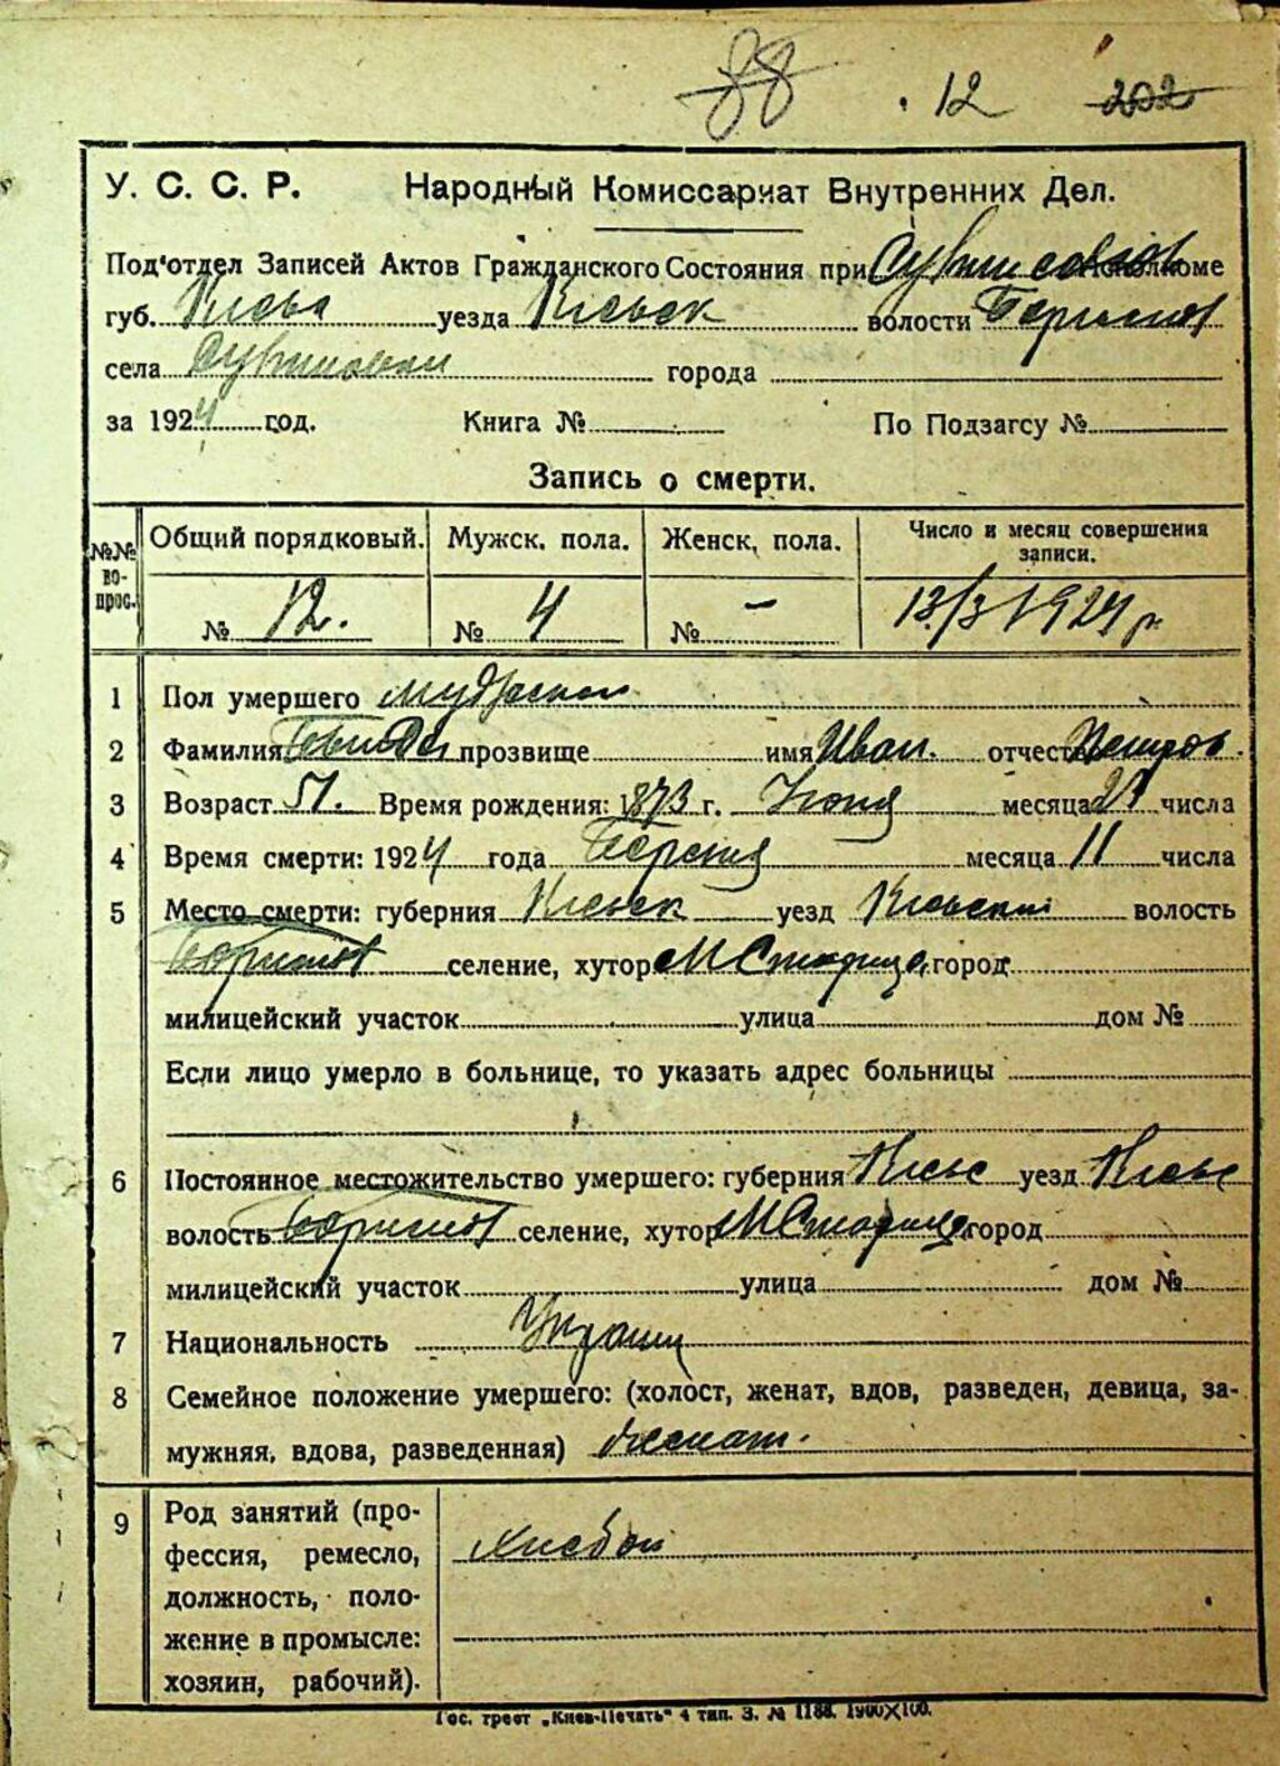 88 12 202
У. С. С. Р. Народный Комиссариат Внутренних Дел.
Под'отдел Записей Актов Гражданского Состояния при Исполкоме
губ. уезда Киевск волости
села города
за 1924 год. Книга № По Подзагсу №
Запись о смерти.
№№ во-прос. Общий порядковый. Мужск. пола. Женск. пола. Число и месяц совершения записи.
№ 12. № 4 № — 13/3 1924 р.
1 Пол умершего
2 Фамилия прозвище имя Иван. отчество
3 Возраст 51. Время рождения: 1873 г. месяца числа
4 Время смерти: 1924 года месяца 11 числа
5 Место смерти: губерния Киевск уезд Киевский волость
селение, хутор М Стариця город
милицейский участок улица дом №
Если лицо умерло в больнице, то указать адрес больницы
6 Постоянное местожительство умершего: губерния Киевс уезд Киевс
волость селение, хутор М Стариця город
милицейский участок улица дом №
7 Национальность
8 Семейное положение умершего: (холост, женат, вдов, разведен, девица, за-
мужняя, вдова, разведенная) женат.
9 Род занятий (про-
фессия, ремесло,
должность, поло-
жение в промысле:
хозяин, рабочий).
Гос. трест „Киев-Печать" 4 тип. З. № 1188. 1900×100.